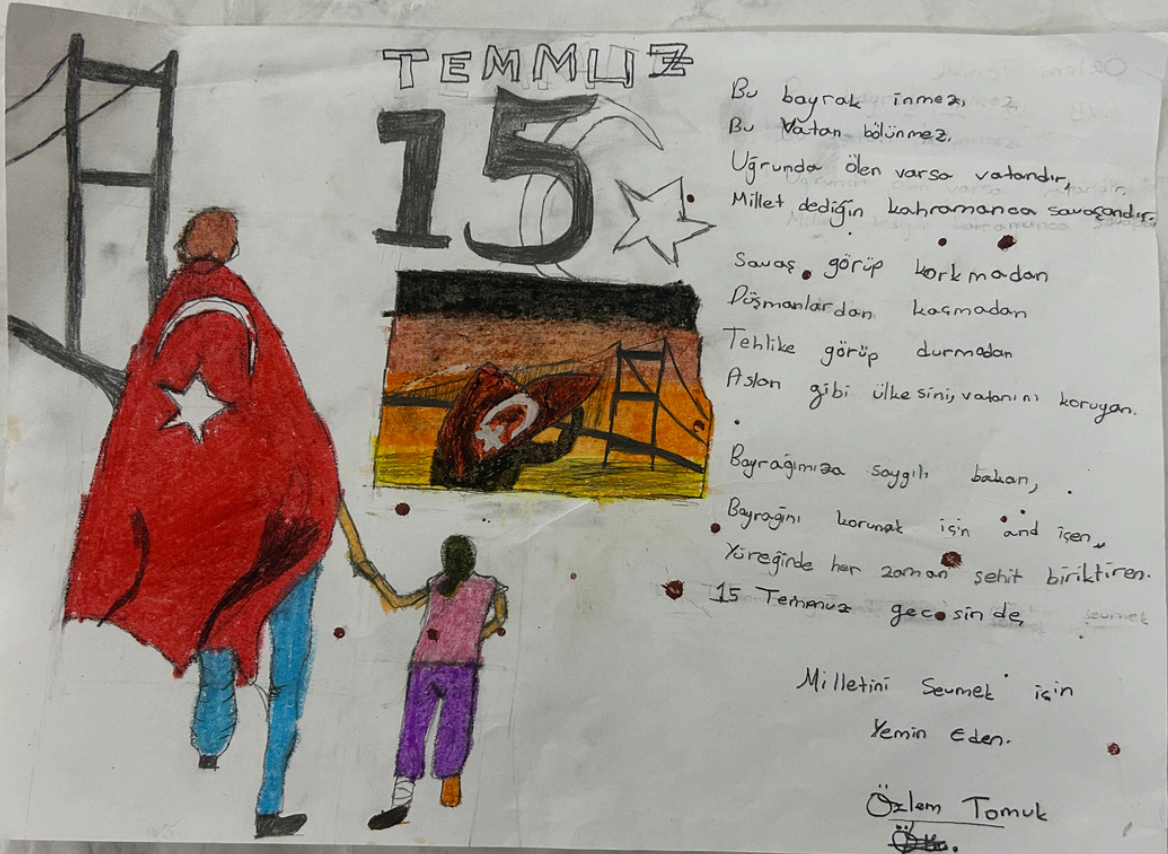 TEMMUZ
15
Bu bayrak inmez,
Bu Vatan bölünmez.
Uğrunda ölen varsa vatandır,
Millet dediğin kahramanca savaşandır.
Savaş görüp korkmadan
Düşmanlardan kaçmadan
Tehlike görüp durmadan
Aslan gibi ülkesini, vatanını koruyan.
Bayrağımıza saygılı bakan,
Bayrağını korumak için and içen,
Yüreğinde her zaman şehit biriktiren.
15 Temmuz gecesinde,
Milletini Sevmek için
Yemin Eden.
Özlem Tomuk